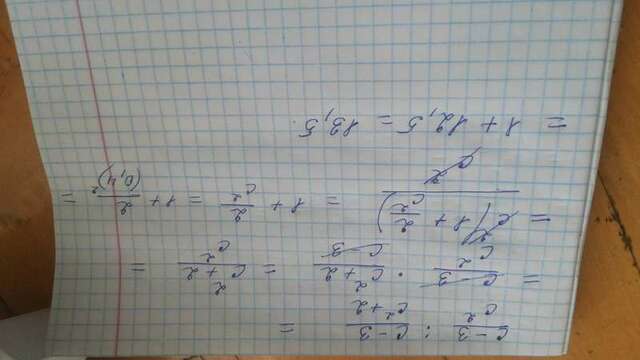 c-3/c² : c-3/c²+2 =
= c-3/c² · c²+2/c-3 = c²+2/c² =
= c²(1+2/c²)/c² = 1+2/c² = 1+2/(0,4)² =
= 1+12,5 = 13,5.